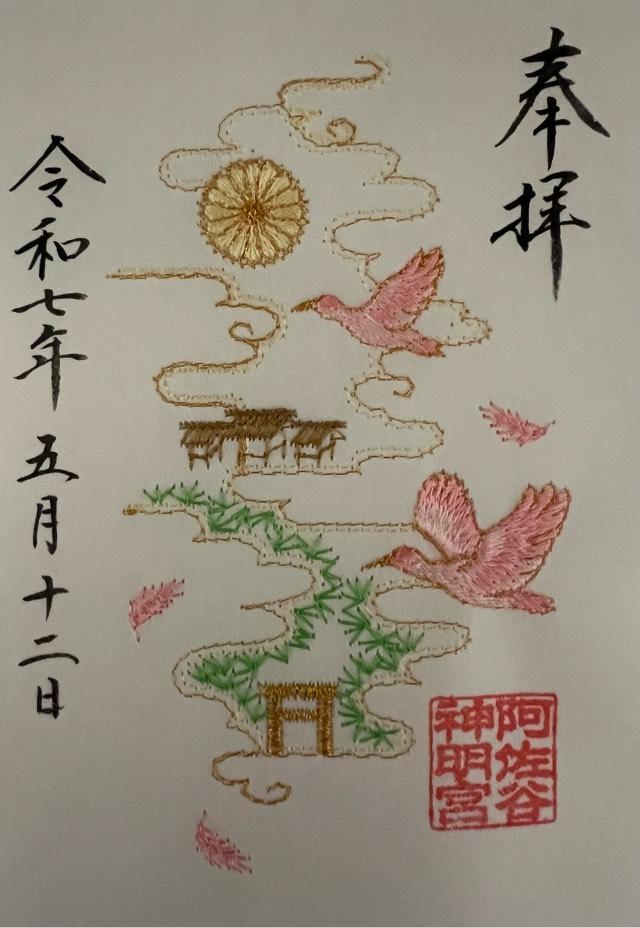 奉拝
阿佐谷
神明宮
令和七年 五月十二日